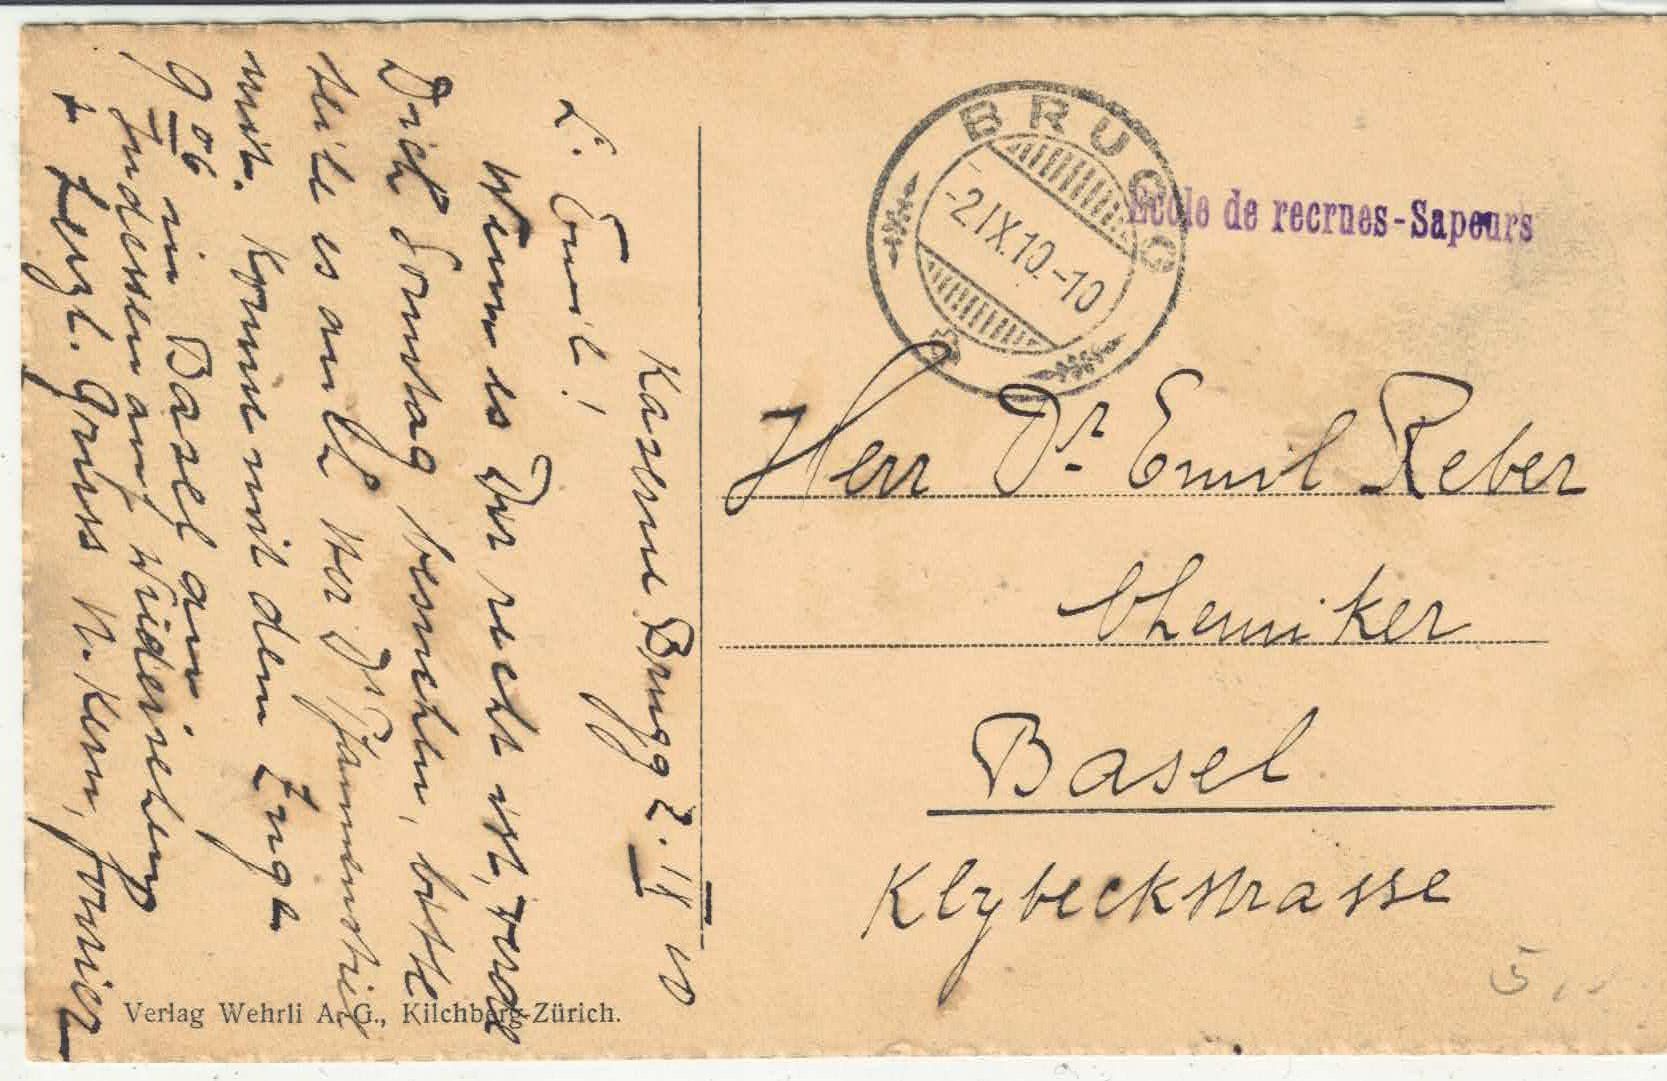 Kaserne Brugg 2. IX 10
L. Emil!
Wenn es Dir recht ist, werde
Dich Sonntag besuchen, bitte
teile es auch Herr Dr
mit. Komme mit dem Zuge
9 06 in Basel an.
Indessen auf Wiedersehen
& herzl. Gruss Kern, fourier
Verlag Wehrli A.-G., Kilchberg-Zürich.
BRUGG
-2.IX.10.-10
Ecole de recrues-Sapeurs
Herr Dr. Emil Reber
Chemiker
Basel
Klybeckstrasse
5